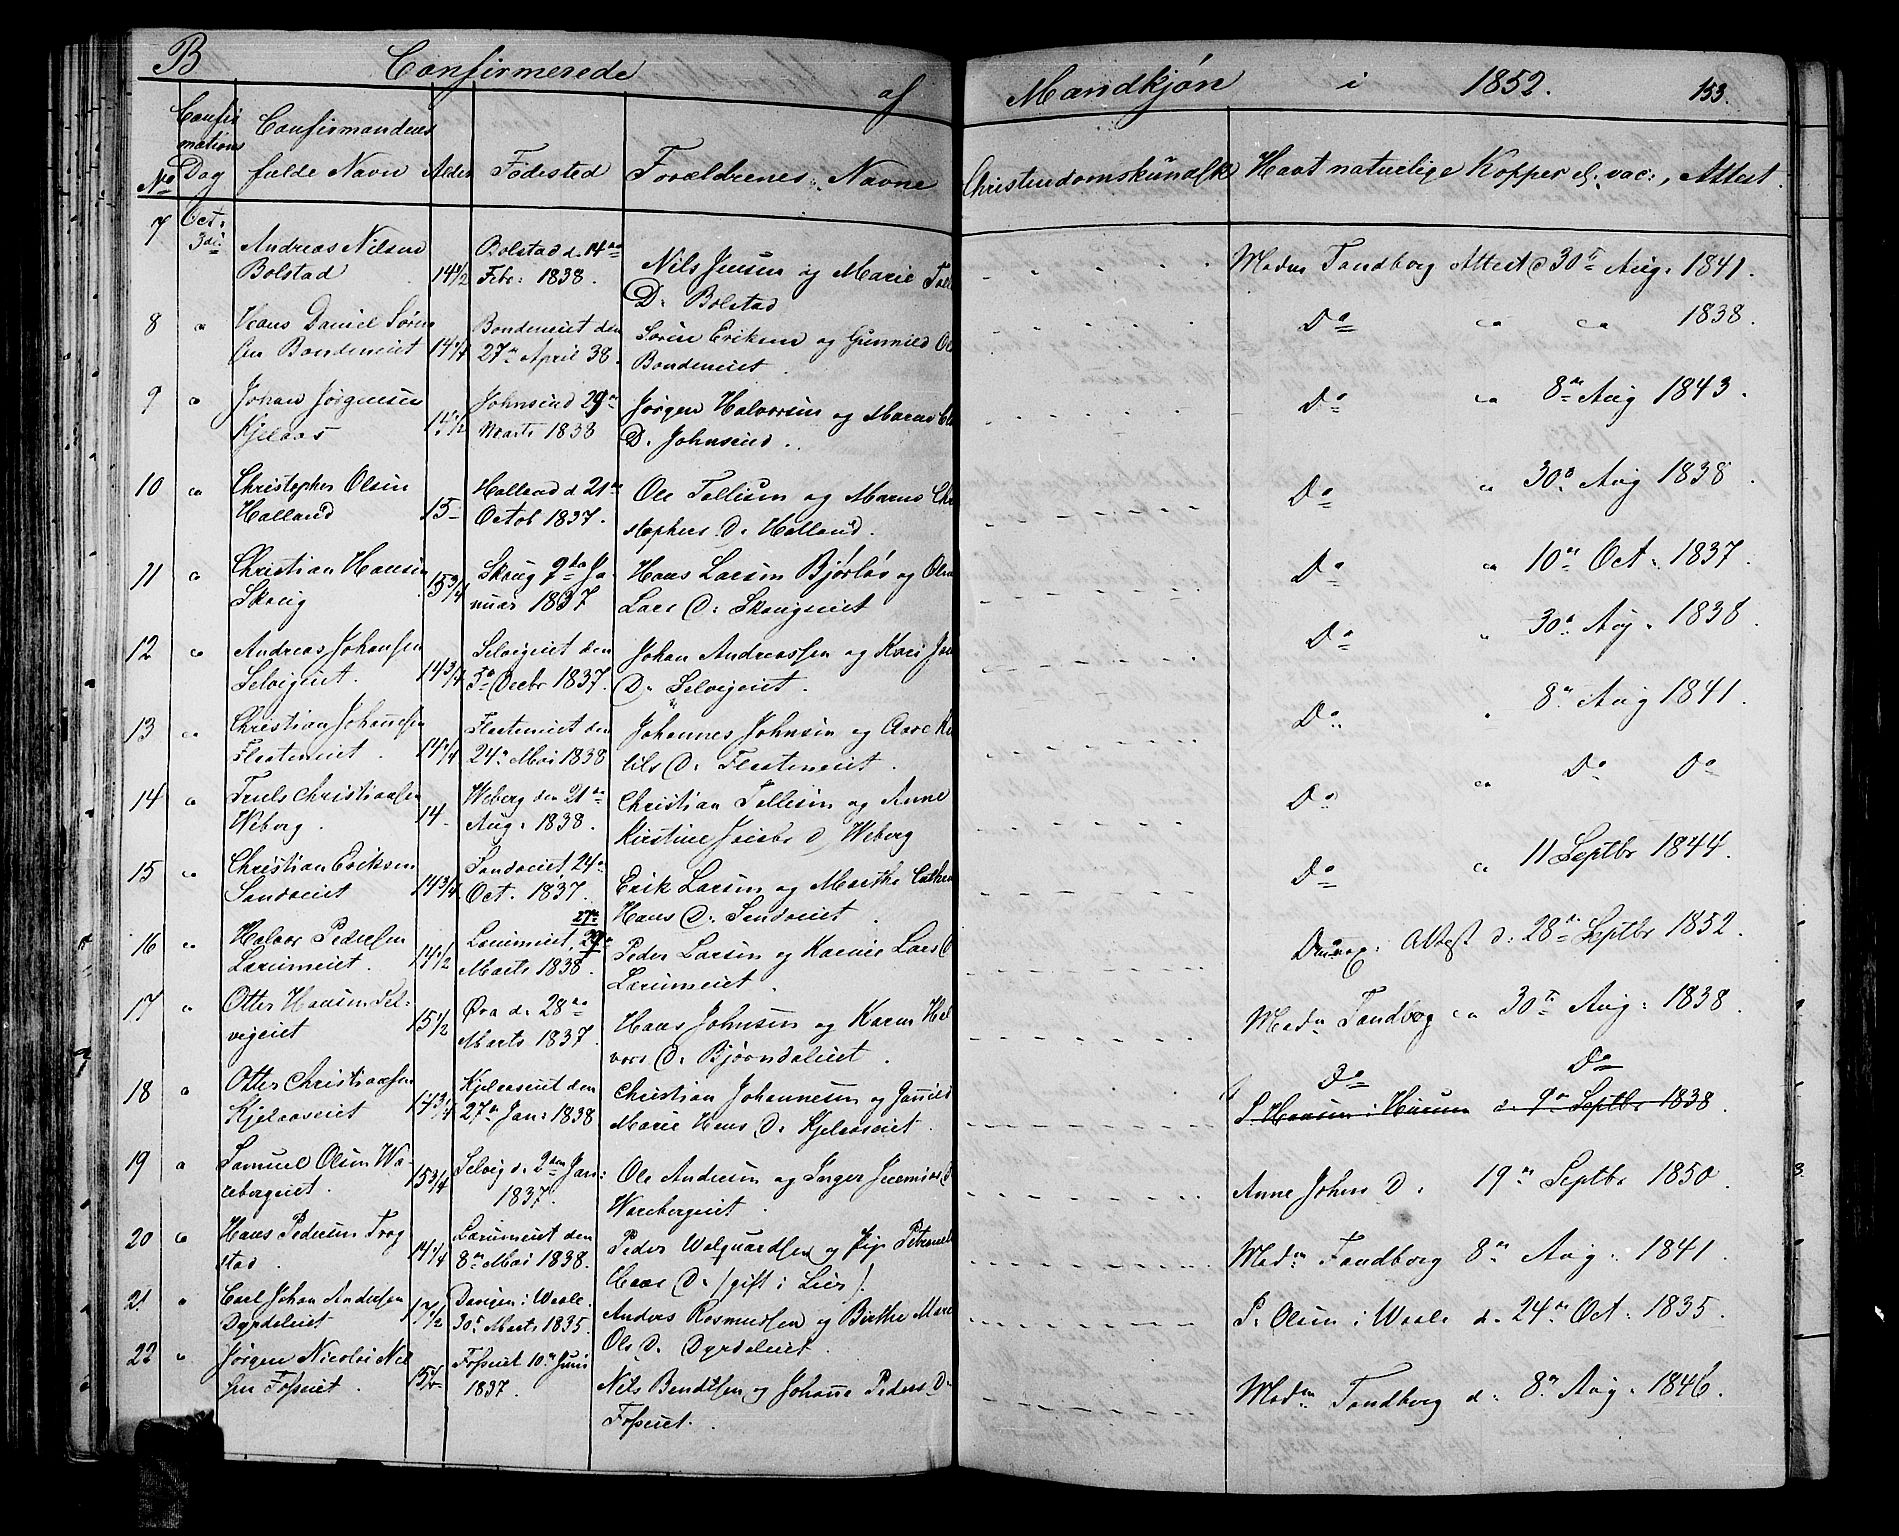 B Confirmerede af Mandkjøn i 1852. 153.
Confirmations Dag
No
Confirmandens fulde Navn
Alder
Fødested
Forældrenes Navne
Christendomskundsk
Havt naturlige Kopper el. vac:, Attest.
7 Oct. 3die Andreas Nilsen Bolstad 14 1/2 Bolstad d. 14de Febr: 1838. Nils Jensen og Marie D. Bolstad Madm Tandberg Attest d 30te Aug. 1841.
8 " Hans Daniel Sørensen Bondeneiet 14 1/4 Bondeneiet den 27de April 38. Søren Eriksen og Gunnild Bondeneiet. Do " " 1838.
9 " Johan Jørgensen Kjelaas 14 1/2 Johnsrud 29de Marts 1838 Jørgen Halvorsen og Maren D. Johnsrud. Do " 8de Aug 1843.
10 " Christopher Olsen Halland 15 Halland d. 21de Octob 1837. Ole Tollefsen og Maren Christophers D. Halland. Do " 30te Aug 1838.
11 " Christian Hansen Skoug 15 3/4 Skoug 9de Januar 1837 Hans Larsen Bjørløs og Lars D. Skougeiet Do " 10de Oct. 1837.
12 " Andreas Johansen Selvigeiet. 14 3/4 Selvigeiet den Decbr 1837. Johan Andreassen og Kari D. Selvigeiet. Do " 30te Aug. 1838
13 " Christian Johannesen Flesteneiet. 14 1/4 Flesteneiet den 24de Mai 1838 Johannes Johnsen og D. Flesteneiet. Do " 8de Aug 1841.
14 " Truls Christiansen Weberg. 14 Weberg den 21de Aug. 1838. Christian Tollefsen og Anne Kirstine D. Weberg Do " Do Do
15 " Christian Eriksen Sandoeiet 14 3/4 Sandoeiet, 24de Oct. 1837. Erik Larsen og Marthe Hans D. Sandoeiet. Do " 11 Septbr 1844.
16 " Halvor Pedersen Lærumeiet. 14 1/2 Lærumeiet, 29de 27de Marts 1838. Peder Larsen og Karine Lars D Lærumeiet. Attest d. 28de Septbr 1852.
17 " Otter Hansen Selvigeiet 15 1/2 Øra d. 28de Marts 1837. Hans Johnsen og Karen Halvors D. Bjørndaleiet. Madm Tandberg " 30te Aug. 1838.
18 " Otter Christiansen Kjelaaseiet 14 3/4 Kjelaaseiet den 27de Jan: 1838 Christian Johannesen og Marie Hans D. Kjelaaseiet. Do Do
S Hansen i Hurum d. 9de Septbr 1838.
19 " Samuel Olsen Warebergeiet. 15 3/4 Selvig d. 2den Jan: 1837. Ole Andersen og Inger D Warebergeiet. Anne Johns D. 19de Septbr 1850.
20 " Hans Pedersen Trogstad. 14 1/4 Lærumeiet den 8de Mai 1838. Peder Wolquardsen og Pige Hans D. /gift i Lier/. Madm Tandberg 8de Aug. 1841.
21 " Carl Johan Andersen Dyrdaleiet 17 1/2 i Waale. 30te Marts 1835. Anders Rasmussen og Birthe Ols D. Dyrdaleiet. P. Olsen i Waale d. 24de Oct. 1835.
22 " Jørgen Nicolai Nilsen Fosseiet. 15 1/4 Fosseiet 10de Juni 1837. Nils Bendtsen og Johanne Peders D. Fosseiet. Madm Tandberg d. 8de Aug. 1846.